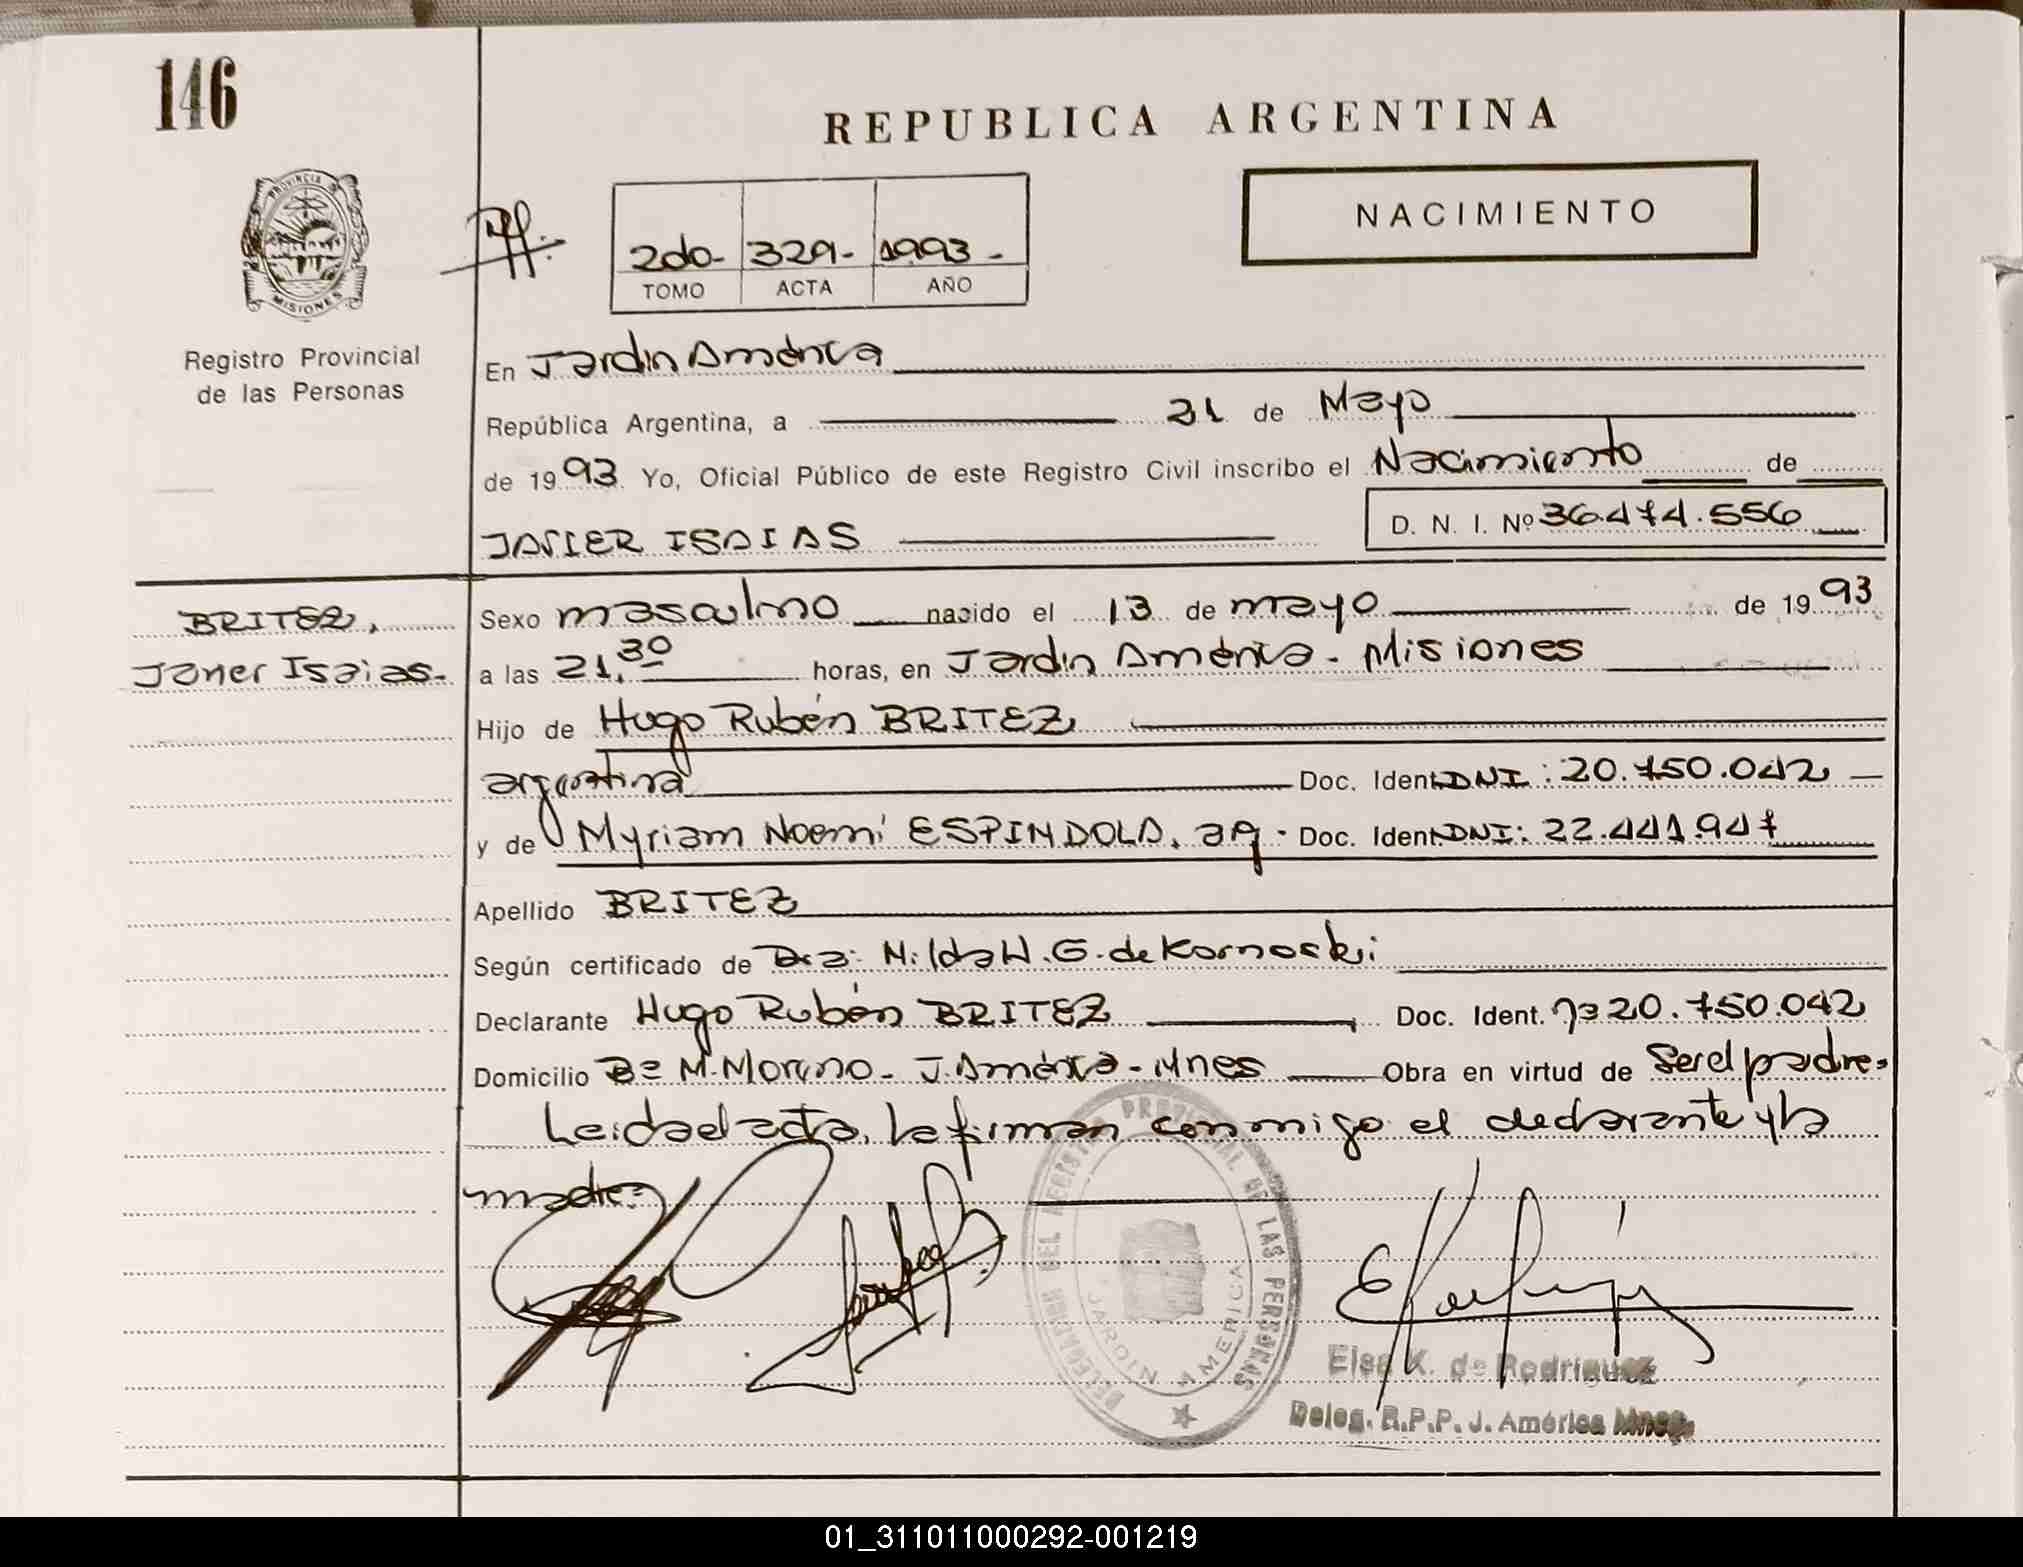 146
REPUBLICA ARGENTINA
PROVINCIA DE
MISIONES
NACIMIENTO
2do- 329- 1993-
TOMO ACTA AÑO
Registro Provincial
de las Personas
En Jardín América
República Argentina, a 21 de Mayo
de 1993 Yo, Oficial Público de este Registro Civil inscribo el Nacimiento de
JAVIER ISAIAS D. N. I. Nº 36.474.556
BRITEZ,
Javier Isaias.
Sexo masculino nacido el 13 de mayo de 1993
a las 21,30 horas, en Jardín América - Misiones
Hijo de Hugo Rubén BRITEZ
argentina Doc. Ident. DNI: 20.750.042
y de Myriam Noemí ESPINDOLA, arg. Doc. Ident. DNI: 22.441.947
Apellido BRITEZ
Según certificado de Dra: Nilda W. G. de Kornoski
Declarante Hugo Rubén BRITEZ Doc. Ident. 20.750.042
Domicilio Bº M. Moreno - J. América - Mnes Obra en virtud de Ser el padre.
Leida el acta, la firman conmigo el declarante y la
madre.
DELEGACION DEL REGISTRO PROVINCIAL DE LAS PERSONAS
JARDIN AMERICA
Elsa K. de Rodriguez
Deleg. R.P.P. J. América Mnes.
01_311011000292-001219